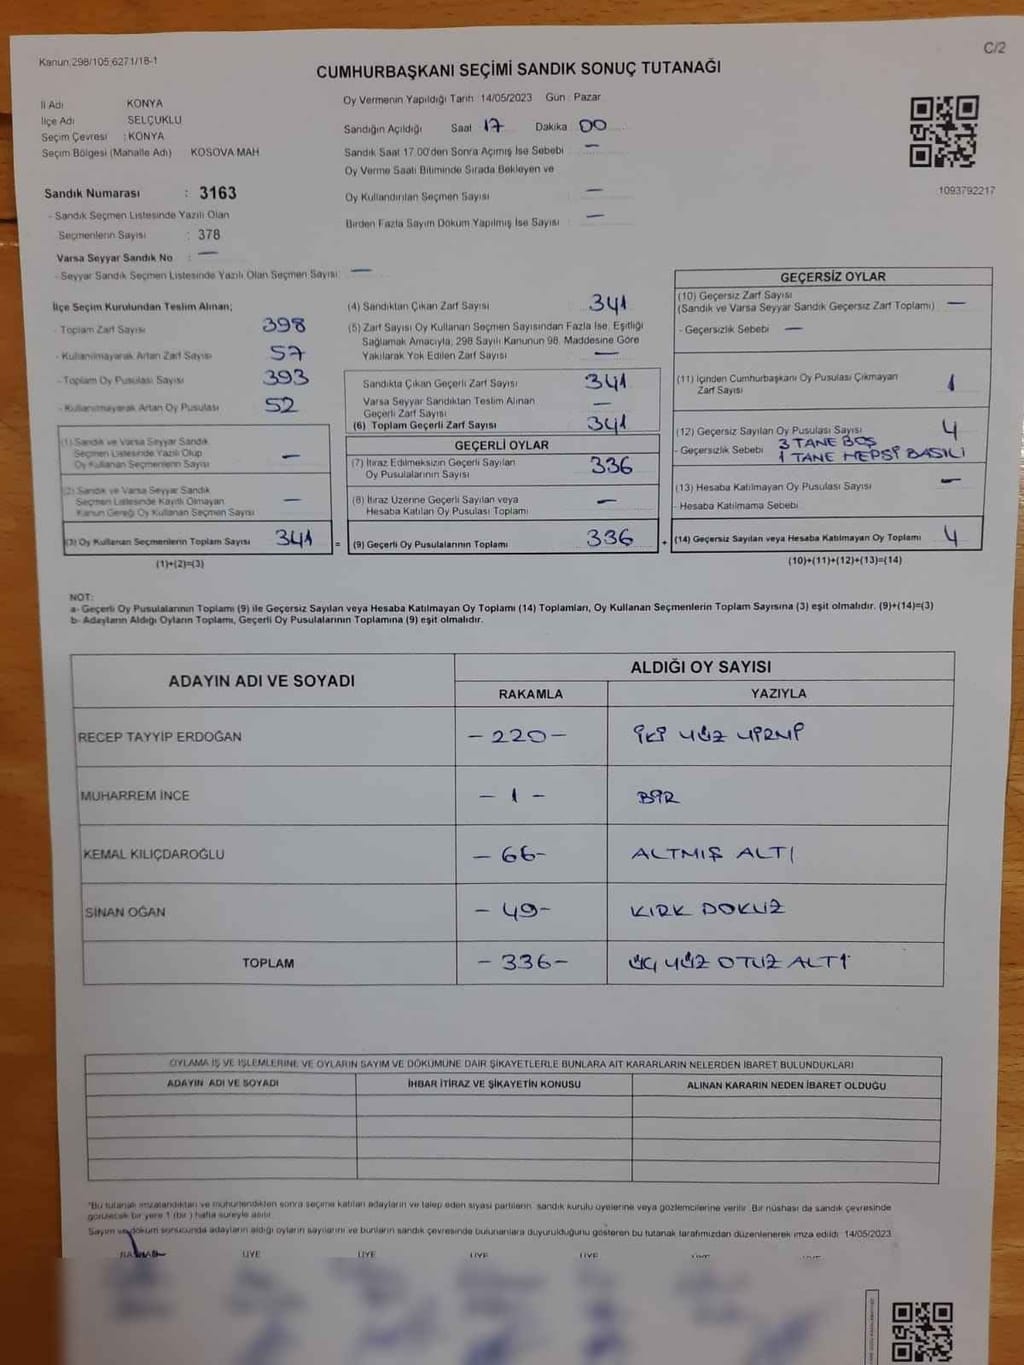 Kanun:298/105,6271/18-1
C/2
CUMHURBAŞKANI SEÇİMİ SANDIK SONUÇ TUTANAĞI
İl Adı KONYA
İlçe Adı SELÇUKLU
Seçim Çevresi : KONYA
Seçim Bölgesi (Mahalle Adı) KOSOVA MAH
Oy Vermenin Yapıldığı Tarih 14/05/2023 Gün : Pazar
Sandığın Açıldığı Saat 17 Dakika 00
Sandık Saat 17.00'den Sonra Açımış İse Sebebi —
Oy Verme Saati Bitiminde Sırada Bekleyen ve
Oy Kullandırılan Seçmen Sayısı —
Birden Fazla Sayım Döküm Yapılmış İse Sayısı —
1093792217
Sandık Numarası : 3163
- Sandık Seçmen Listesinde Yazılı Olan
Seçmenlerin Sayısı : 378
Varsa Seyyar Sandık No : —
- Seyyar Sandık Seçmen Listesinde Yazılı Olan Seçmen Sayısı: —
İlçe Seçim Kurulundan Teslim Alınan;
- Toplam Zarf Sayısı 398
- Kullanılmayarak Artan Zarf Sayısı 57
- Toplam Oy Pusulası Sayısı 393
- Kullanılmayarak Artan Oy Pusulası 52
(1) Sandık ve Varsa Seyyar Sandık
Seçmen Listesinde Yazılı Olup
Oy Kullanan Seçmenlerin Sayısı —
(2) Sandık ve Varsa Seyyar Sandık
Seçmen Listesinde Kayıtlı Olmayan
Kanun Gereği Oy Kullanan Seçmen Sayısı —
(3) Oy Kullanan Seçmenlerin Toplam Sayısı 341 =
(1)+(2)=(3)
(4) Sandıktan Çıkan Zarf Sayısı 341
(5) Zarf Sayısı Oy Kullanan Seçmen Sayısından Fazla İse, Eşitliği
Sağlamak Amacıyla, 298 Sayılı Kanunun 98. Maddesine Göre
Yakılarak Yok Edilen Zarf Sayısı —
Sandıkta Çıkan Geçerli Zarf Sayısı 341
Varsa Seyyar Sandıktan Teslim Alınan
Geçerli Zarf Sayısı —
(6) Toplam Geçerli Zarf Sayısı 341
GEÇERLİ OYLAR
(7) İtiraz Edilmeksizin Geçerli Sayılan
Oy Pusulalarının Sayısı 336
(8) İtiraz Üzerine Geçerli Sayılan veya
Hesaba Katılan Oy Pusulası Toplamı —
(9) Geçerli Oy Pusulalarının Toplamı 336 +
GEÇERSİZ OYLAR
(10) Geçersiz Zarf Sayısı
(Sandık ve Varsa Seyyar Sandık Geçersiz Zarf Toplamı) —
- Geçersizlik Sebebi —
(11) İçinden Cumhurbaşkanı Oy Pusulası Çıkmayan
Zarf Sayısı 1
(12) Geçersiz Sayılan Oy Pusulası Sayısı 4
- Geçersizlik Sebebi 3 TANE BOŞ
1 TANE HEPSİ BASILI
(13) Hesaba Katılmayan Oy Pusulası Sayısı —
- Hesaba Katılmama Sebebi
(14) Geçersiz Sayılan veya Hesaba Katılmayan Oy Toplamı 4
(10)+(11)+(12)+(13)=(14)
NOT:
a- Geçerli Oy Pusulalarının Toplamı (9) ile Geçersiz Sayılan veya Hesaba Katılmayan Oy Toplamı (14) Toplamları, Oy Kullanan Seçmenlerin Toplam Sayısına (3) eşit olmalıdır. (9)+(14)=(3)
b- Adayların Aldığı Oyların Toplamı, Geçerli Oy Pusulalarının Toplamına (9) eşit olmalıdır.
ADAYIN ADI VE SOYADI
ALDIĞI OY SAYISI
RAKAMLA YAZIYLA
RECEP TAYYİP ERDOĞAN - 220 - İKİ YÜZ YİRMİ
MUHARREM İNCE - 1 - BİR
KEMAL KILIÇDAROĞLU - 66 - ALTMIŞ ALTI
SİNAN OĞAN - 49 - KIRK DOKUZ
TOPLAM - 336 - ÜÇ YÜZ OTUZ ALTI
OYLAMA İŞ VE İŞLEMLERİNE VE OYLARIN SAYIM VE DÖKÜMÜNE DAİR ŞİKAYETLERLE BUNLARA AİT KARARLARIN NELERDEN İBARET BULUNDUKLARI
ADAYIN ADI VE SOYADI İHBAR İTİRAZ VE ŞİKAYETİN KONUSU ALINAN KARARIN NEDEN İBARET OLDUĞU
"Bu tutanak imzalandıktan ve mühürlendikten sonra seçime katılan adayların ve talep eden siyasi partilerin sandık kurulu üyelerine veya gözlemcilerine verilir. Bir nüshası da sandık çevresinde
görülecek bir yere 1 (bir) hafta süreyle asılır.
Sayım ve döküm sonucunda adayların aldığı oyların sayılarını ve bunların sandık çevresinde bulunanlara duyurulduğunu gösteren bu tutanak tarafımızdan düzenlenerek imza edildi. 14/05/2023
BAŞKAN ÜYE ÜYE ÜYE ÜYE